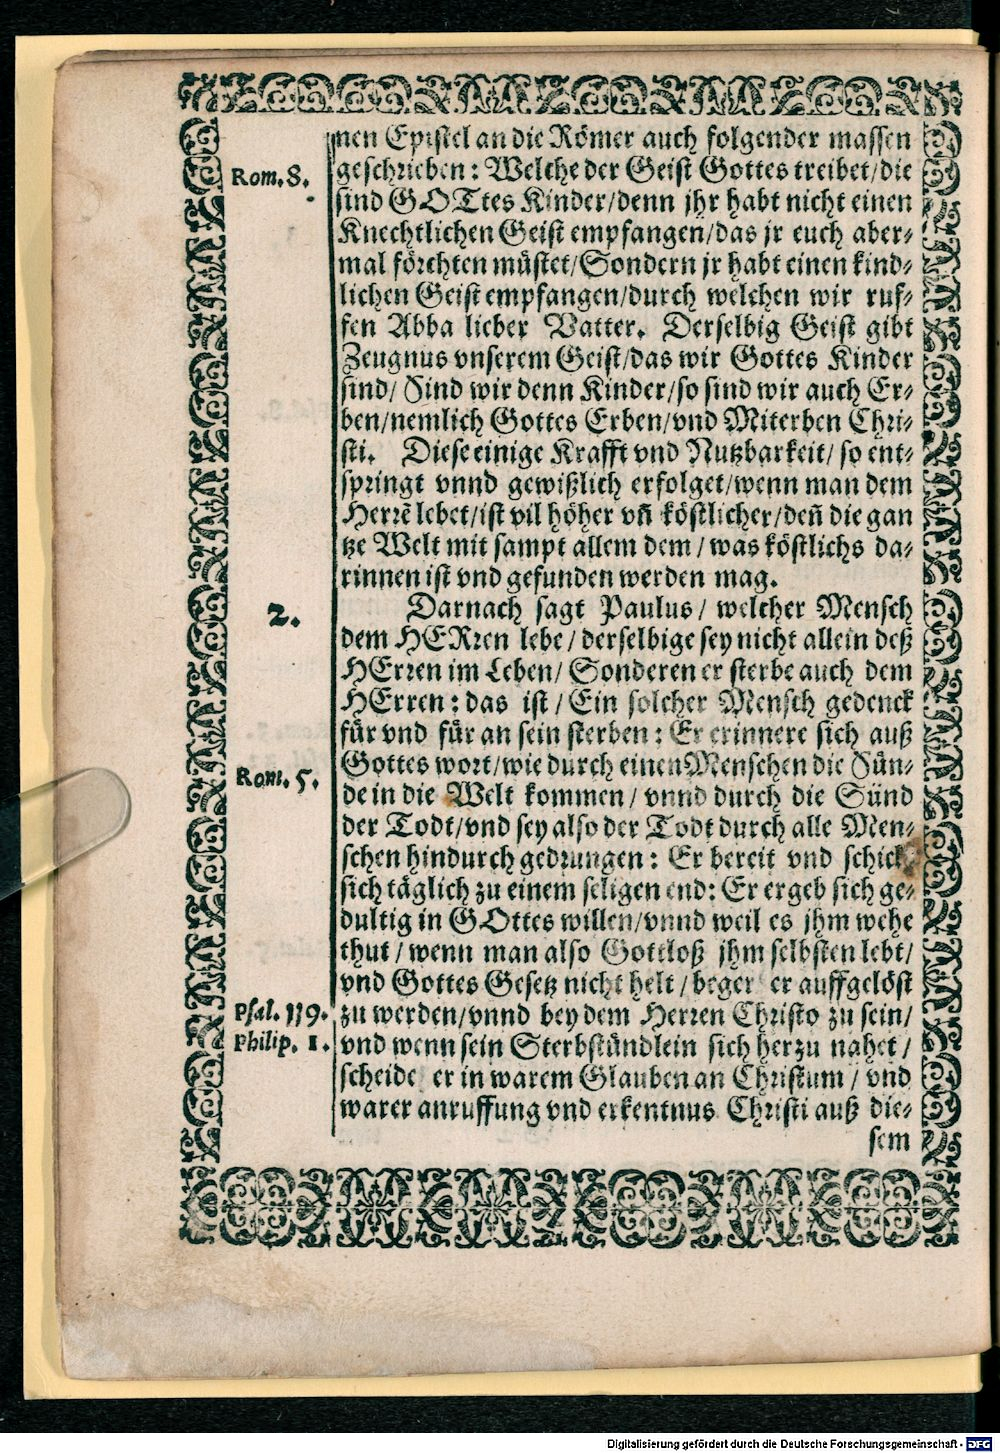 nen Epistel an die Römer auch folgender massen
Rom. 8. geschrieben: Welche der Geist Gottes treibet/die
sind GOTtes Kinder/denn jhr habt nicht einen
Knechtlichen Geist empfangen/das jr euch aber-
mal förchten müstet/Sondern jr habt einen kind-
lichen Geist empfangen/durch welchen wir ruf-
fen Abba lieber Vatter. Derselbig Geist gibt
Zeugnus vnserem Geist/das wir Gottes Kinder
sind/ Sind wir denn Kinder/so sind wir auch Er-
ben/nemlich Gottes Erben/vnd Miterben Chri-
sti. Diese einige Krafft vnd Nutzbarkeit/ so ent-
springt vnnd gewißlich erfolget/wenn man dem
Herrē lebet/ist vil höher vñ köstlicher/deñ die gan
tze Welt mit sampt allem dem/ was köstlichs da-
rinnen ist vnd gefunden werden mag.
2. Darnach sagt Paulus/ welcher Mensch
dem HERren lebe/ derselbige sey nicht allein deß
HErren im Leben/ Sonderen er sterbe auch dem
HErren: das ist/ Ein solcher Mensch gedenck
für vnd für an sein sterben: Er erinnere sich auß
Rom. 5. Gottes wort/wie durch einen Menschen die Sün-
de in die Welt kommen/ vnnd durch die Sünd
der Todt/vnd sey also der Todt durch alle Men-
schen hindurch gedrungen: Er bereit vnd schick
sich täglich zu einem seligen end: Er ergeb sich ge-
dultig in GOttes willen/vnnd weil es jhm wehe
thut/ wenn man also Gottloß jhm selbsten lebt/
vnd Gottes Gesetz nicht helt/ beger er auffgelöst
Psal. 119. zu werden/vnnd bey dem Herren Christo zu sein/
Philip. 1. vnd wenn sein Sterbstündlein sich herzu nahet/
scheide er in warem Glauben an Christum/ vnd
warer anruffung vnd erkentnus Christi auß die-
sem
Digitalisierung gefördert durch die Deutsche Forschungsgemeinschaft - DFG